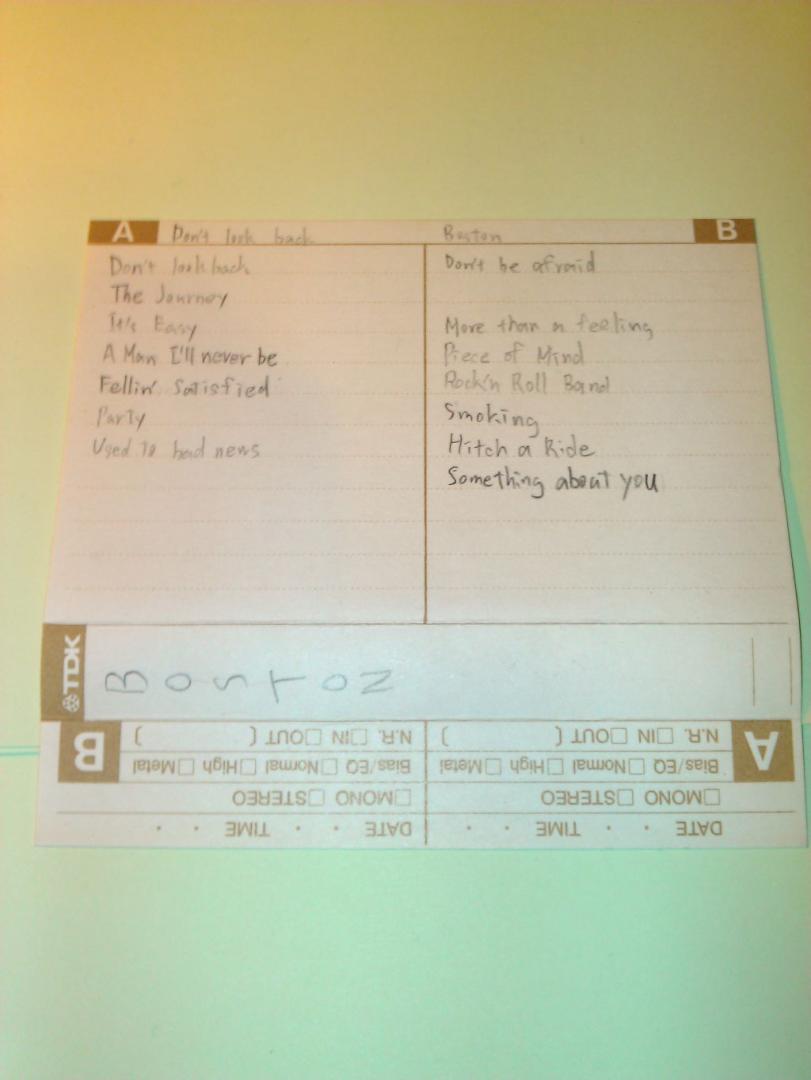 A Don't look back
Don't look back
The Journey
It's Easy
A Man I'll never be
Fellin' Satisfied
Party
Used to bad news
Boston B
Don't be afraid
More than a feeling
Piece of Mind
Rock'n Roll Band
Smoking
Hitch a Ride
Something about you
TDK
BOSTON
A
N.R. □IN □OUT ( )
Bias/EQ □Normal □High □Metal
□MONO □STEREO
DATE . . TIME .
B
N.R. □IN □OUT ( )
Bias/EQ □Normal □High □Metal
□MONO □STEREO
DATE . . TIME . .